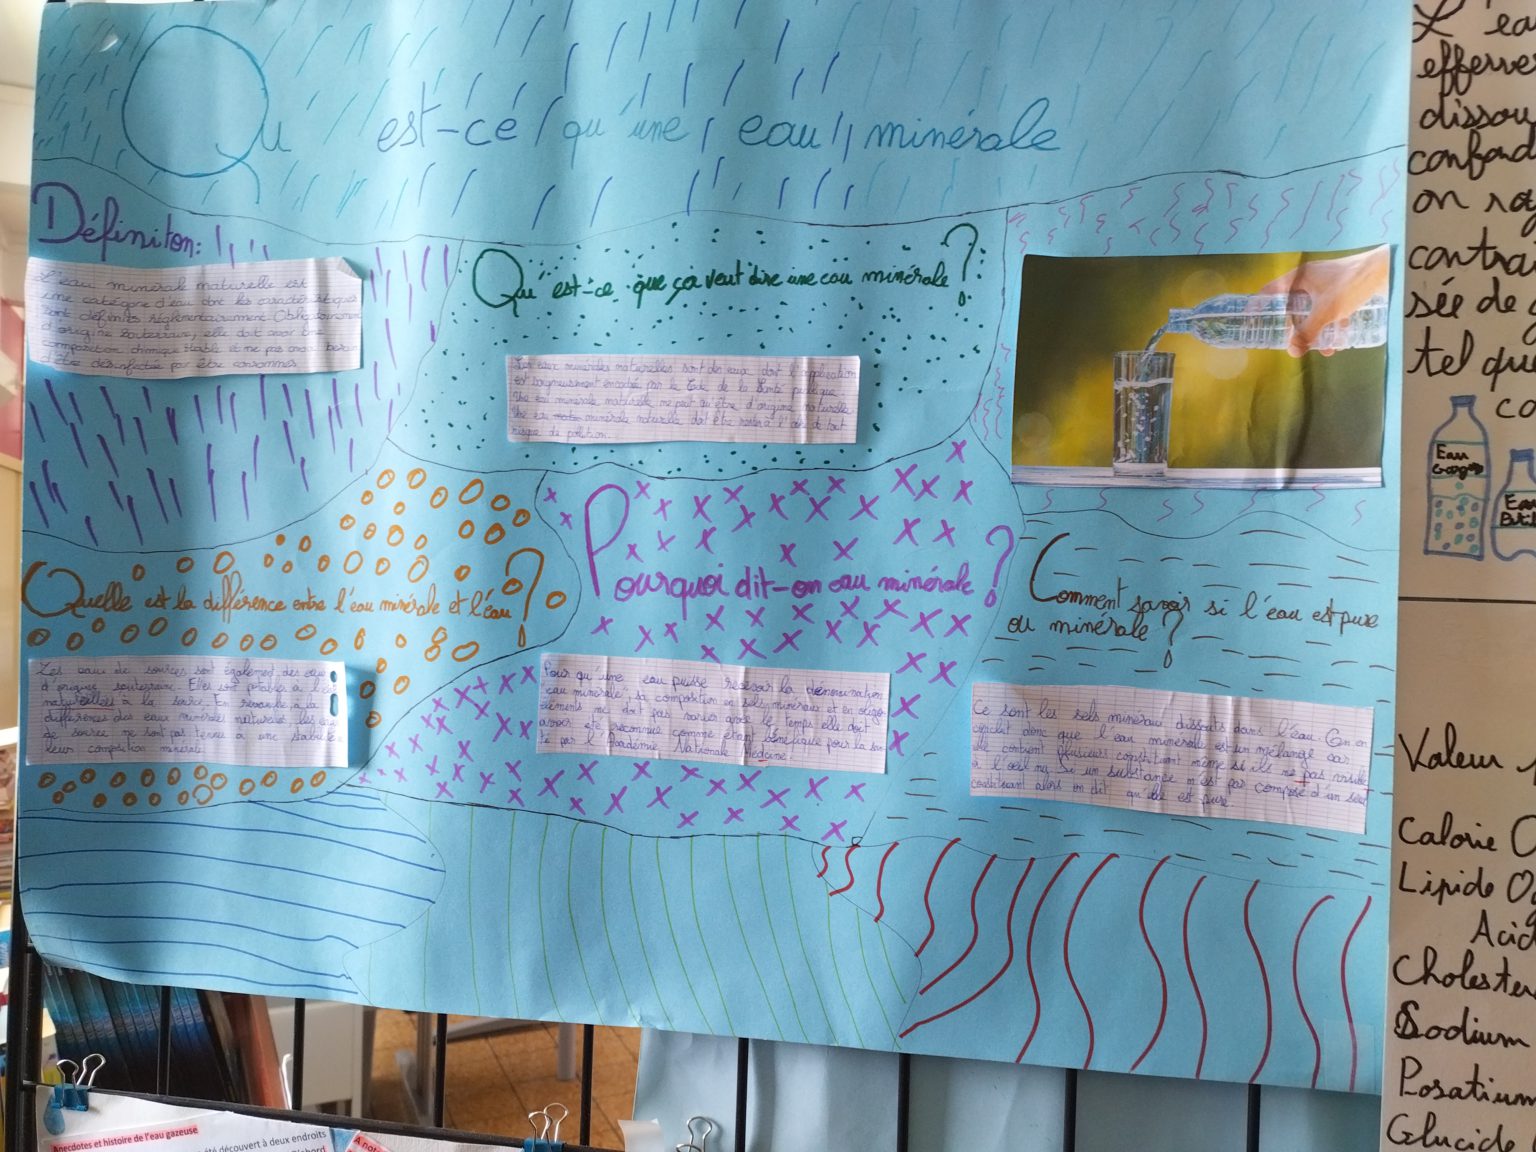 Qu est-ce qu'une eau minérale
Définiton:
L'eau minérale naturelle est
une catégorie d'eau dont les caractéristiques
sont définies réglementairement. Obligatoirement
d'origine souterraine, elle doit avoir une
composition chimique stable et ne pas avoir besoin
d'être désinfectée par être consommée
Qu'est-ce que ça veut dire une eau minérale?
Les eaux minérales naturelles sont des eaux dont l'application
est soigneusement encadrée par le Code de la Santé publique
Une eau minérale naturelle ne peut qu'être d'origine naturelle
Une eau minérale naturelle doit être à l'abri de tout
risque de pollution.
Quelle est la différence entre l'eau minérale et l'eau?
Les eau de sources sont également des eau
d'origine souterraine. Elles sont potables à l'é
naturelles à la source. En revanche, à la
différences des eaux minérales naturels, les eau
de source ne sont pas tenues à une stabilité
leur composition minérale
Pourquoi dit-on eau minérale?
Pour qu'une eau puisse recevoir la dénomination
eau minérale", sa composition en sels mineraux et en oligo-
éléments ne doit pas varier avec le temps elle doit
avoir été reconnue comme étant bénéfique pour la san
té par l'Académie Nationale Médecine.
Comment savoir si l'eau est pure
ou minérale?
Ce sont les sels minéraux dissouts dans l'eau. On en
conclut donc que l'eau minérale est un mélange car
elle contient plusieurs constituant même si ils ne pas visible
à l'oeil nu. Si un substance n'est pas composé d'un seul
constituant alors on dit qu'elle est pure.
L'ea
efferve
dissou
confond
on ra
contra
sée de g
tel que
co
Eau
Gazeuse
Eau
Valeur
Calorie 0
Lipide 0g
Acid
Cholester
Sodium
Posatium
Glucide
Anecdotes et histoire de l'eau gazeuse
été découvert à deux endroits
A not